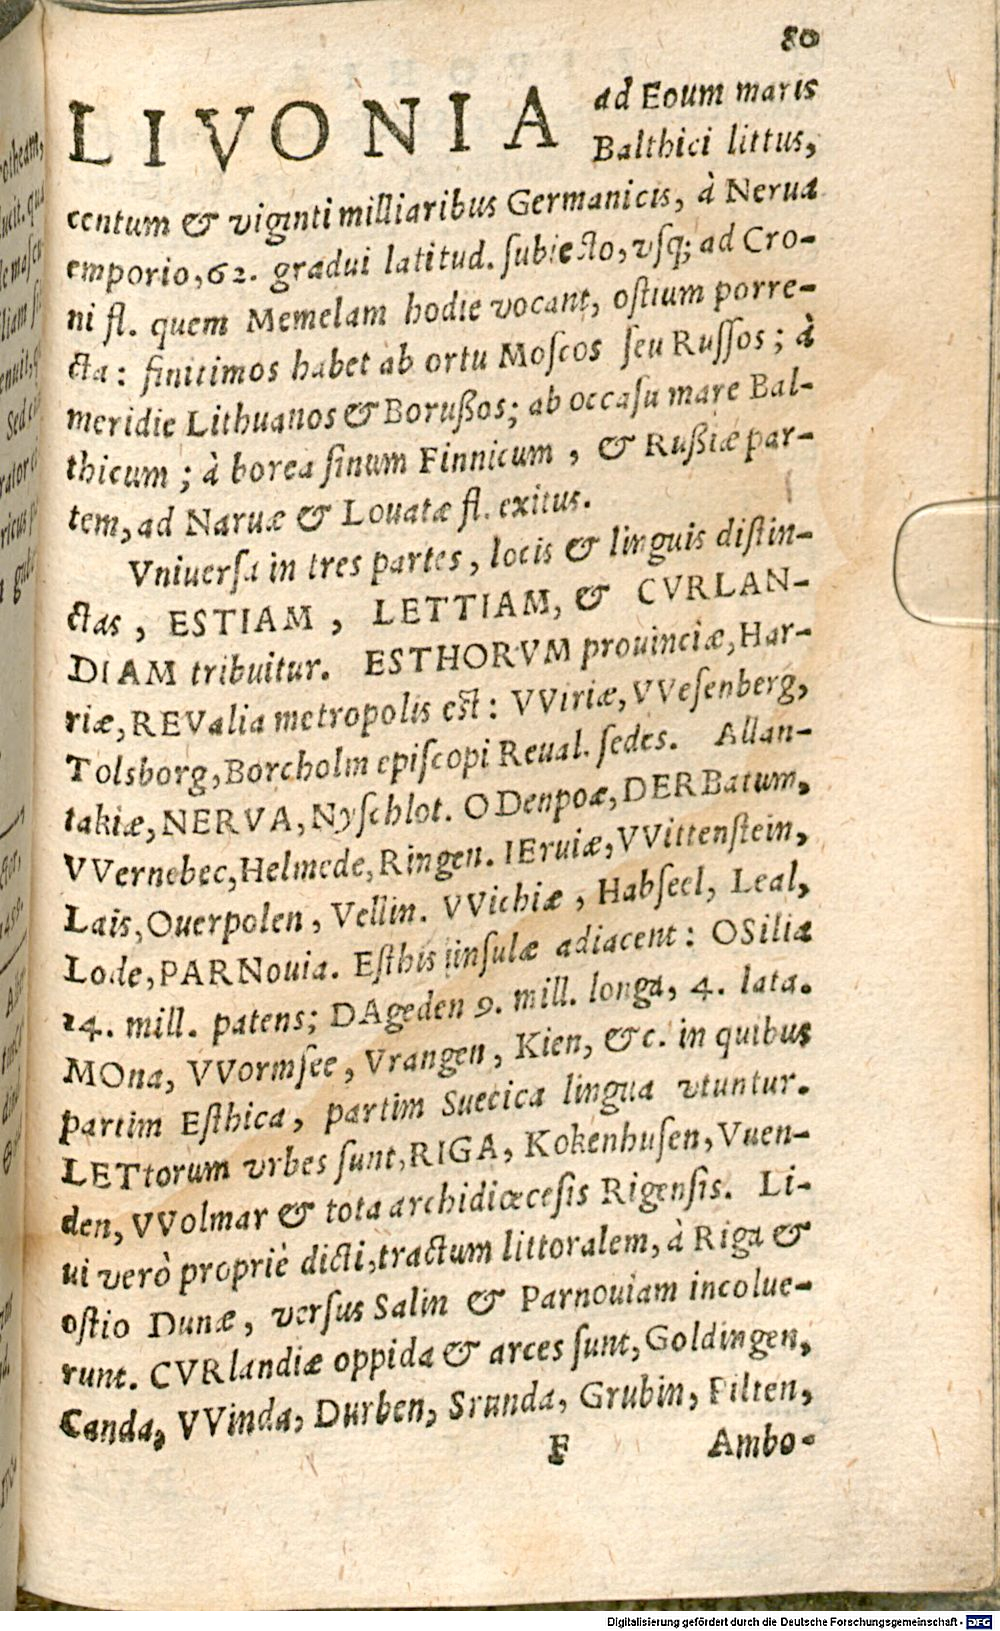 80
LIVONIA ad Eoum maris
Balthici littus,
centum & viginti milliaribus Germanicis, à Nerua
emporio, 62. gradui latitud. ſubiecto, vſq; ad Cro-
ni fl. quem Memelam hodie vocant, oſtium porre-
cta: finitimos habet ab ortu Moſcos ſeu Ruſſos; à
meridie Lithuanos & Borußos; ab occaſu mare Bal-
thicum; à borea ſinum Finnicum, & Rußiæ par-
tem, ad Naruæ & Louatæ fl. exitus.
Vniuerſa in tres partes, locis & linguis diſtin-
ctas, ESTIAM, LETTIAM, & CVRLAN-
DIAM tribuitur. ESTHORVM prouinciæ, Har-
riæ, REValia metropolis est: VViriæ, VVeſenberg,
Tolsborg, Borcholm epiſcopi Reual. ſedes. Allan-
takiæ, NERVA, Nyſchlot. ODenpoæ, DERBatum,
VVernebec, Helmede, Ringen. IEruiæ, VVittenſtein,
Lais, Ouerpolen, Vellin. VVichiæ, Habſeel, Leal,
Lode, PARNouia. Eſthis inſulæ adiacent: OSilia
14. mill. patens; DAgeden 9. mill. longa, 4. lata.
MOna, VVormſee, Vrangen, Kien, &c. in quibus
partim Eſthica, partim Suecica lingua vtuntur.
LETtorum vrbes ſunt, RIGA, Kokenhuſen, Vuen-
den, VVolmar & tota archidiœceſis Rigenſis. Li-
ui verò propriè dicti, tractum littoralem, à Riga &
oſtio Dunæ, versus Salin & Parnouiam incolue-
runt. CVRlandiæ oppida & arces ſunt, Goldingen,
Canda, VVinda, Durben, Srunda, Grubin, Pilten,
F Ambo-
Digitalisierung gefördert durch die Deutsche Forschungsgemeinschaft - DFG